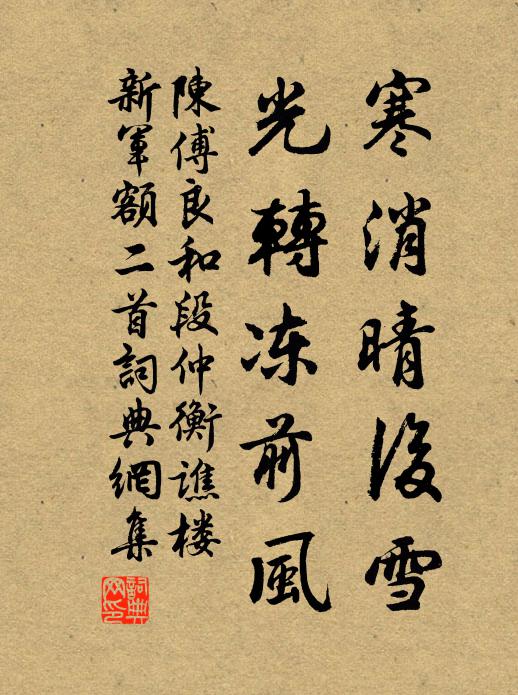 寒消晴後雪
光轉凍前風
陳傅良和段仲衡譙楼
新軍額二首詞典網集
詞典網印